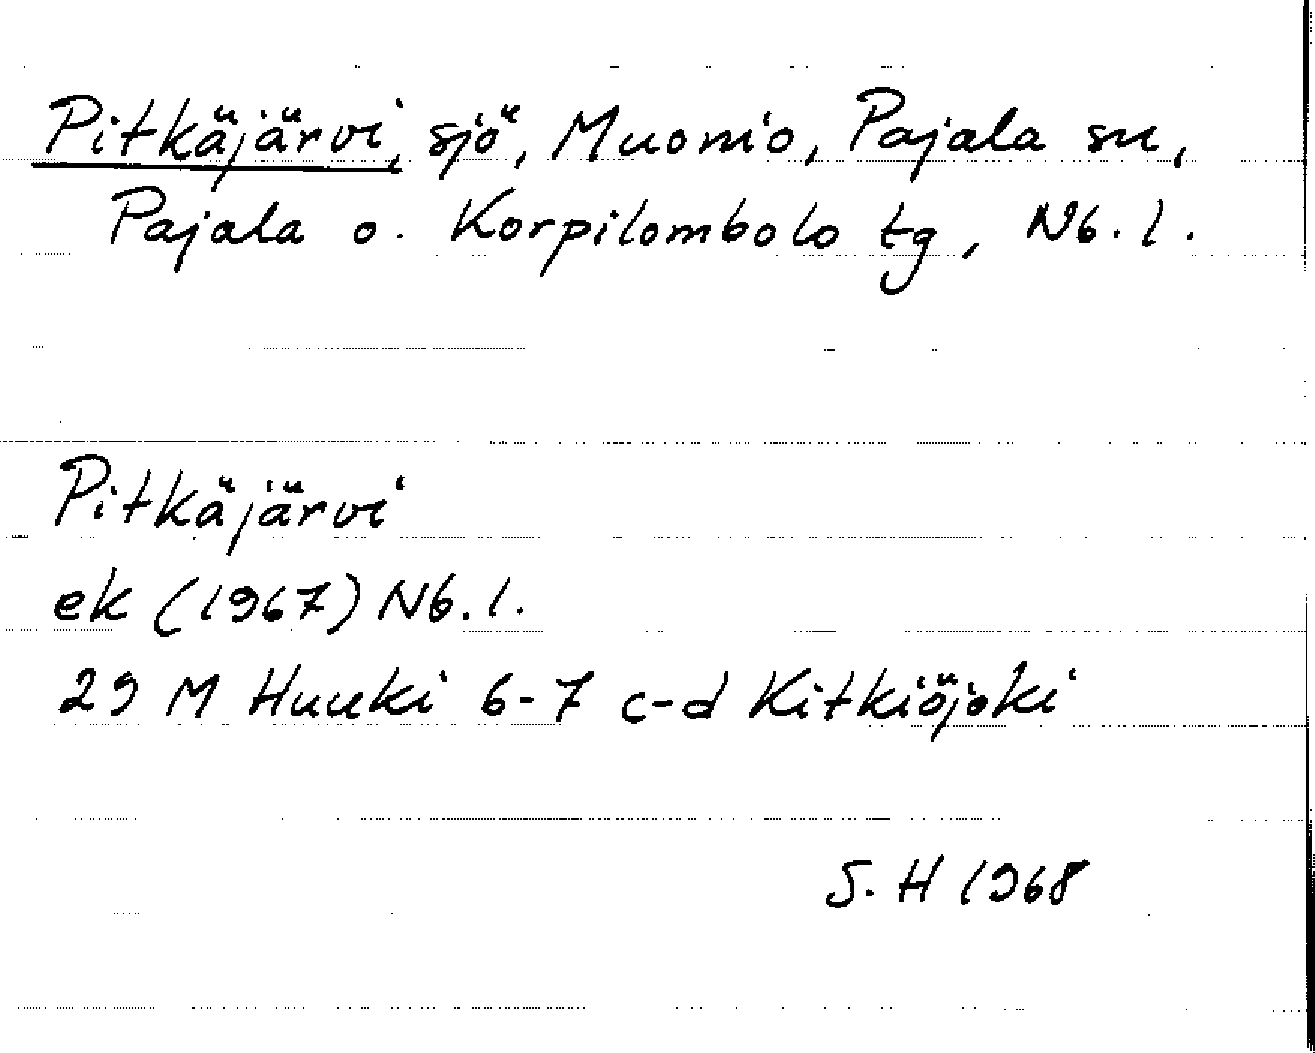 Pitkäjärvi, sjö, Muonio, Pajala sn,
Pajala o. Korpilombolo tg, Nb. l.
Pitkäjärvi
ek (1967) Nb. l.
29 M Huuki 6-7 c-d Kitkiöjoki
S. H 1968